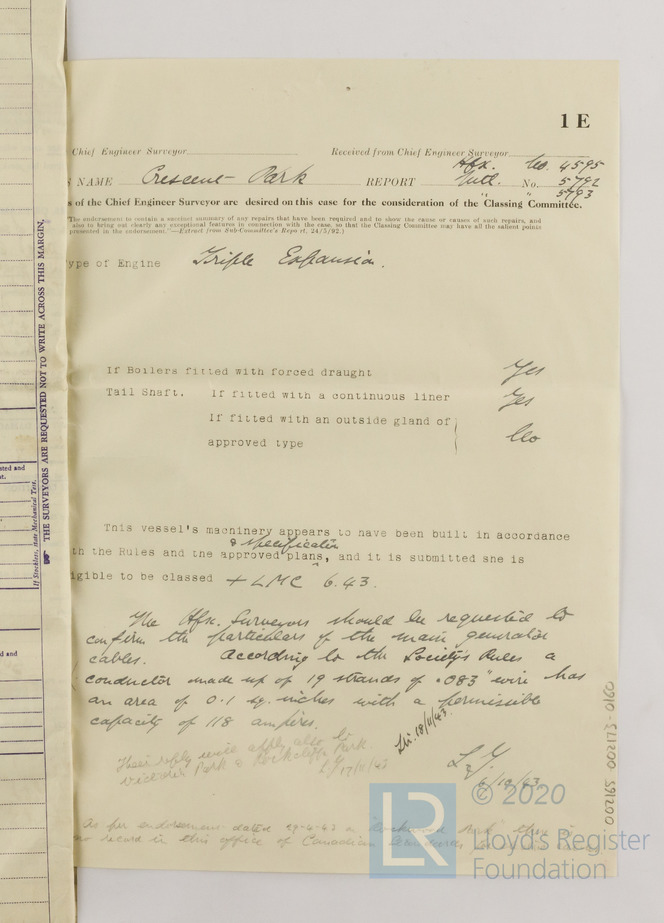 1 E
Chief Engineer Surveyor
Received from Chief Engineer Surveyor
Hfx. No. 4595
NAME Crescent Park REPORT Mntl. No. 5792
" 5793
s of the Chief Engineer Surveyor are desired on this case for the consideration of the Classing Committee.
"The endorsement to contain a succinct summary of any repairs that have been required and to show the cause or causes of such repairs, and
also to bring out clearly any exceptional features in connection with the case, so that the Classing Committee may have all the salient points
presented in the endorsement."—Extract from Sub-Committee's Report, 24/5/92.)
ype of Engine Triple Expansion.
If Boilers fitted with forced draught Yes
Tail Shaft. If fitted with a continuous liner Yes
If fitted with an outside gland of
approved type No
This vessel's machinery appears to have been built in accordance
& specification
th the Rules and the approved plans, and it is submitted she is
igible to be classed + LMC 6.43.
The Hfx. Surveyors should be requested to
confirm the particulars of the main generator
cables. According to the Society's Rules a
conductor made up of 19 strands of .083" wire has
an area of 0.1 sq. inches with a permissible
capacity of 118 ampères.
Ltr. 18/11/43.
Their reply will apply also to
Victoria Park & Rockcliffe Park
17/11/43
6/10/43
As per endorsement dated 29-4-43 on "Rockwood Park" there is
no record in this office of Canadian
THE SURVEYORS ARE REQUESTED NOT TO WRITE ACROSS THIS MARGIN.
If Stockless, state Mechanical Test.
sted and
st.
d and
002165-002173-0160
© 2020
LR
Lloyd's Register
Foundation